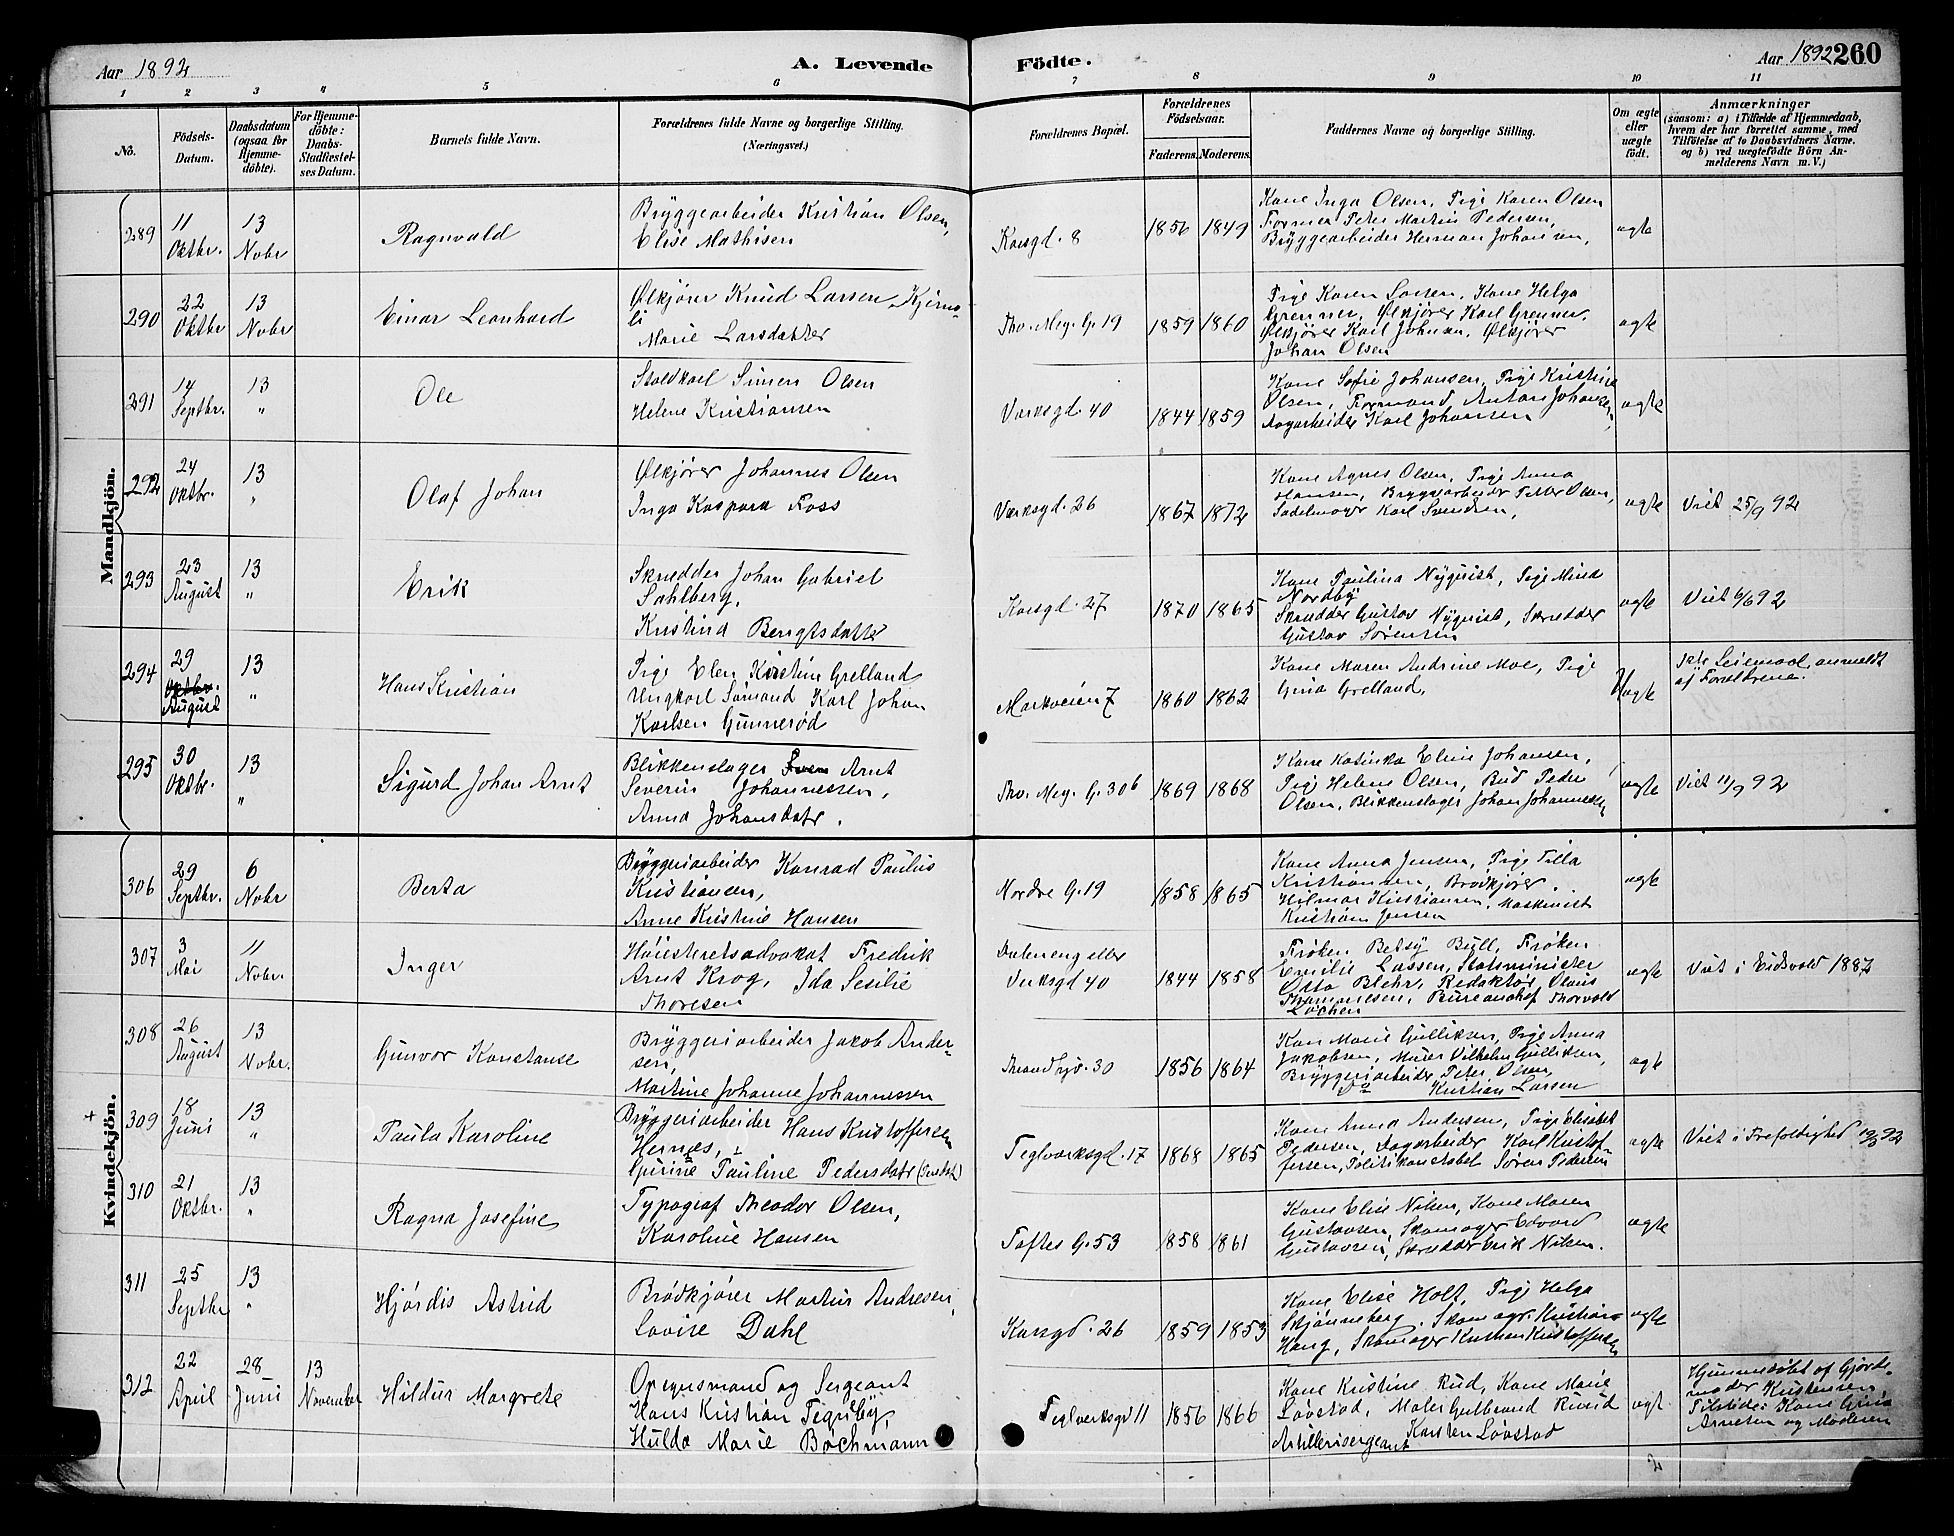 Aar 1892
A. Levende Födte.
Aar 1892 260
1 2 3 4 5 6 7 8 9 10 11
No.
Födsels-Datum.
Daabsdatum (ogsaa for Hjemme-döbte).
For Hjemme-döbte: Daabs-Stadfæstel-ses Datum.
Barnets fulde Navn.
Forældrenes fulde Navne og borgerlige Stilling. (Næringsvei.)
Forældrenes Bopæl.
Forældrenes Födselsaar.
Faderens. Moderens.
Faddernes Navne og borgerlige Stilling.
Om ægte eller uægte født.
Anmærkninger
(saasom: a) i Tilfælde af Hjemmedaab, hvem der har forrettet samme, med Tilföielse af to Daabsvidners Navne. og b) ved uægtefödte Börn An-melderens Navn m. V.)
Mandkjön.
289 11 Oktbr. 13 Novbr Ragnvald
Bryggearbeider Kristian Olsen,
Elise Mathisen
Korsgd. 8 1856 1849
Kone Inga Olsen, Pige Karen Olsen
Former Peter Martin Pedersen,
Bryggearbeider Herman Johansen,
ægte
290 22 Oktbr 13 Novbr Einar Leonhard
Ølkjører Knud Larsen Kjerna-
li
Marie Larsdatter
Tho. Mey. G. 19 1859 1860
Pige Karen Larsen, Kone Helga
Grenner, Ølkjører Karl Grenner.
Ølkjører Karl Johnsen, Ølkjører
Johan Olsen
ægte
291 14 Septbr. 13 " Ole
Staldkarl Simen Olsen
Helene Kristiansen
Værksgd. 40 1844 1859
Kone Sofie Johansen, Pige Kristine
Olsen, Formand Anton Johansen,
Dagarbeider Karl Johansen
ægte
292 24 Oktbr. 13 " Olaf Johan
Ølkjører Johannes Olsen
Inga Kaspara Foss
Værksgd. 26 1867 1872
Kone Agnes Olsen, Pige Anna
Hansen, Bryggearbeider Petter Olsen,
Sadelmager Karl Svendsen,
ægte Viet 25/9 92
293 23 August 13 " Erik
Skrædder Johan Gabriel
Sahlberg,
Kristina Bengtsdatter
Korsgd. 27 1870 1865
Kone Paulina Nyquist, Pige Mina
Nordby
Skrædder Gustav Nyquist, Skrædder
Gustav Sørensen
ægte Viet 6/6 92
294 29 Oktbr. August 13 " Hans Kristian
Pige Elen Kirstine Grelland
Ungkarl Sømand Karl Johan
Karlsen Gunnerød
Markveien 7 1860 1862
Kone Maren Andrine Moe, Pige
Gina Grelland,
Uægte
1ste Leiemaal, anmeldt
af Forældrene.
295 30 Oktbr. 13 " Sigurd Johan Arnt
Blikkenslager Sven Arnt
Severin Johannessen,
Anna Johansdatr.
Tho. Mey. G. 30 b 1869 1868
Kone Katinka Eline Johansen,
Pige Helene Olsen, Bud Peder
Olsen, Blikkenslager Johan Johannessen
ægte Viet 11/9 92
Kvindekjön.
306 29 Septbr. 6 Novbr Berta
Bryggeriarbeider Konrad Paulus
Kristiansen,
Anne Kristine Hansen
Nordre G. 19 1858 1865
Kone Anna Jensen, Pige Tilla
Kristiansen, Brødkjører
Hilmar Kristiansen, Maskinist
Kristian Jensen
ægte
307 3 Mai 11 Novbr. Inger
Høiesteretsadvokat Fredrik
Arnt Krog, Ida Sesilie
Thoresen
Dæleneng eller
Verksgd 40 1844 1858
Frøken Betsy Bull, Frøken
Emilie Lassen, Statsminister
Otto Blehr, Redaktør Olaus
Thommesen, Bureauchef Thorvald
Løchen
ægte Viet i Eidsvold 1887
308 26 August 13 Novbr. Gunvor Konstanse
Bryggeriarbeider Jakob Ander-
sen,
Martine Johanne Johannessen
Trondhjv. 30 1856 1864
Kon Marie Gulliksen, Pige Anna
Jakobsen, Murer Vilhelm Gulliksen,
Bryggeriarbeider Peter Olsen,
Do Kristian Larsen
ægte
+
309 18 Juni 13 " Paula Karoline
Bryggeriarbeider Hans Kristoffersen
Hernæs,
Gurine Pauline Pedersdatr
Teglværksgd. 17 1868 1865
Kone Anna Andersen, Pige Elisabet
Pedersen, Dagarbeider Karl Kristof-
fersen, Politikonstabel Søren Pedersen
ægte Viet i Trefoldighed
310 21 Oktbr. 13 " Ragna Josefine
Typograf Theodor Olsen,
Karoline Hansen
Toftes G. 53 1858 1861
Kone Elise Nilsen, Kone Maren
Gustavsen, Skomager Edvard
Gustavsen, Skrædder Erik Nilsen.
ægte
311 25 Septbr 13 " Hjørdis Astrid
Brødkjører Martin Andresen,
Lovise Dahl
Korsgd. 26 1859 1853
Kone Elise Holt, Pige Helga
Skjønneberg. Skomagr. Kristian
Haug, Skomager Kristian Kristoffersen
ægte
312 22 April 28 Juni 13 November Hildur Margrete
Opsynsmand og Sergeant
Hans Kristian Tegneby,
Hulda Marie Bachmann
Teglverksgd 11 1856 1866
Kone Kristine Rud, Kone Marie
Løvstad, Maler Gulbrand Ruud
Artillerisergeant Karsten Løvstad
ægt.
Hjemmedøbt af Gjorde-
moder Kristensen
Tilstede: Kone Gina
Arnesen og Moderen